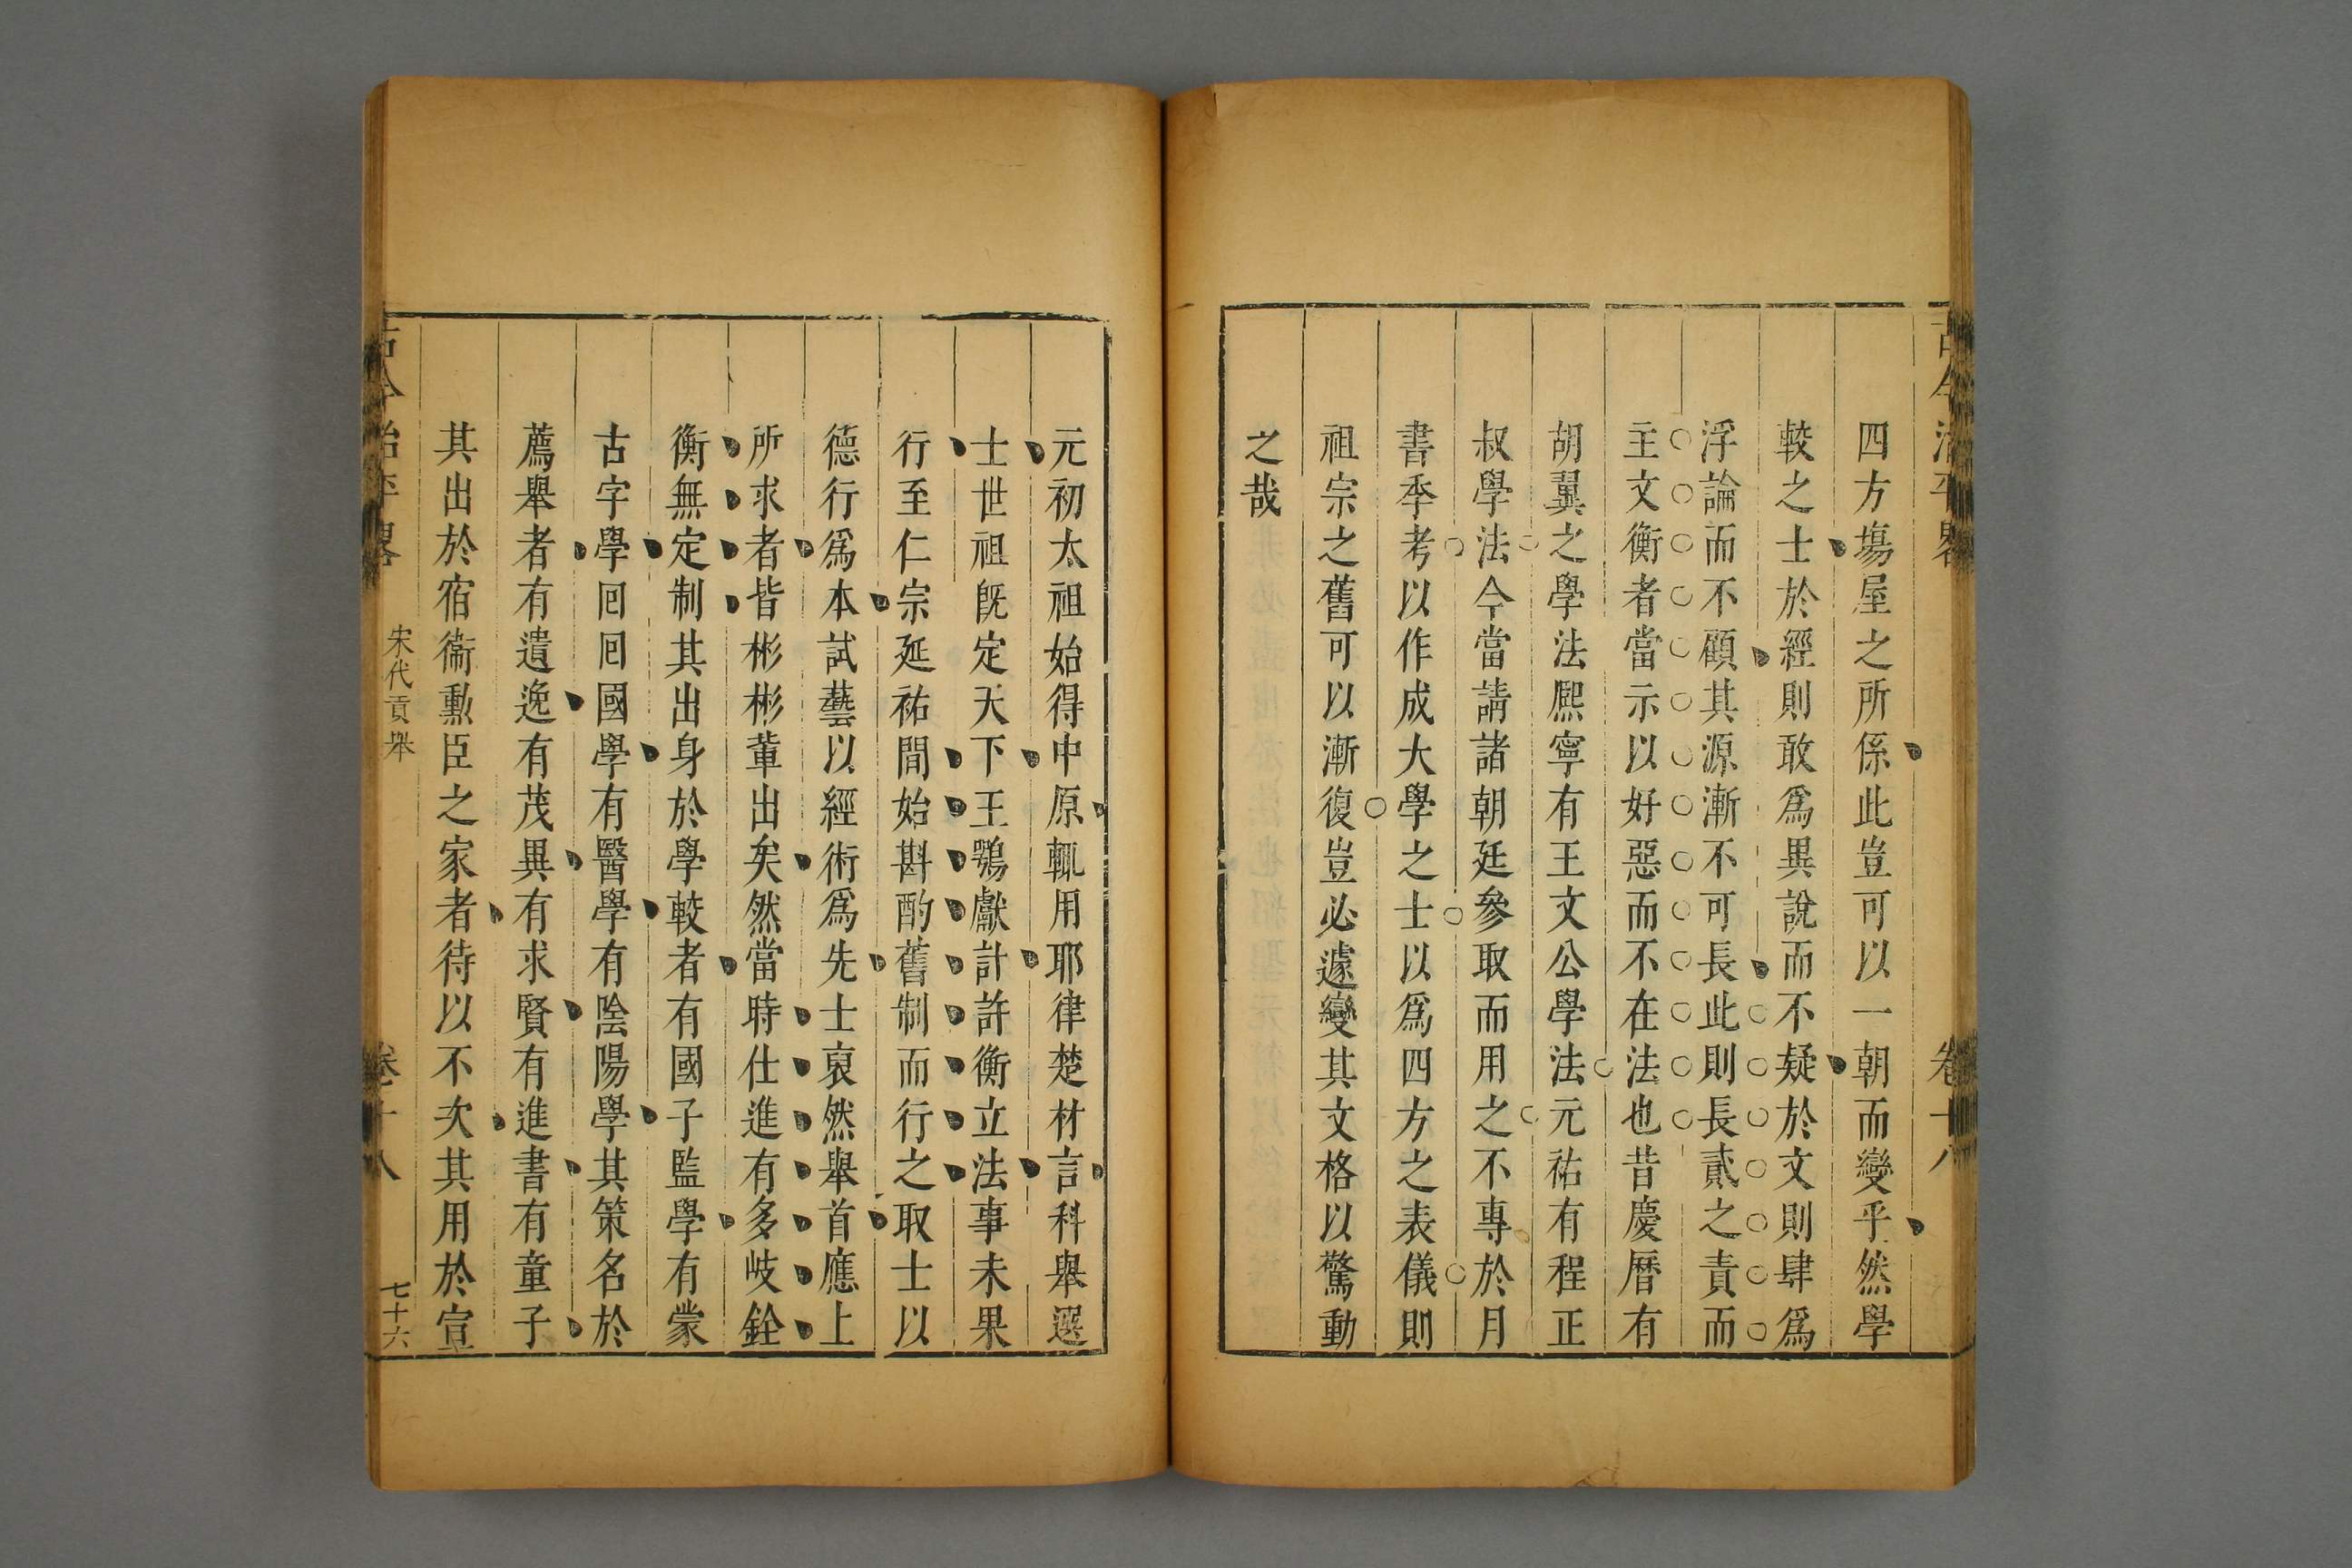 四方場屋之所係此豈可以一朝而變乎然學
較之士於經則敢爲異說而不疑於文則肆爲
浮論而不顧其源漸不可長此則長貳之責而
主文衡者當示以好惡而不在法也昔慶曆有
胡翼之學法熈寧有王文公學法元祐有程正
叔學法今當請諸朝廷參取而用之不專於月
書季考以作成大學之士以爲四方之表儀則
祖宗之舊可以漸復豈必遽變其文格以驚動
之哉
元初太祖始得中原輒用耶律楚材言科舉選
士世祖旣定天下王鶚獻計許衡立法事未果
行至仁宗延祐間始斟酌舊制而行之取士以
德行爲本試藝以經術爲先士裒然舉首應上
所求者皆彬彬輩出矣然當時仕進有多岐銓
衡無定制其出身於學較者有國子監學有蒙
古字學回回國學有醫學有陰陽學其策名於
薦舉者有遺逸有茂異有求賢有進書有童子
其出於宿衞勳臣之家者待以不次其用於宣
古今治平畧
宋代貢舉
卷十八
七十六